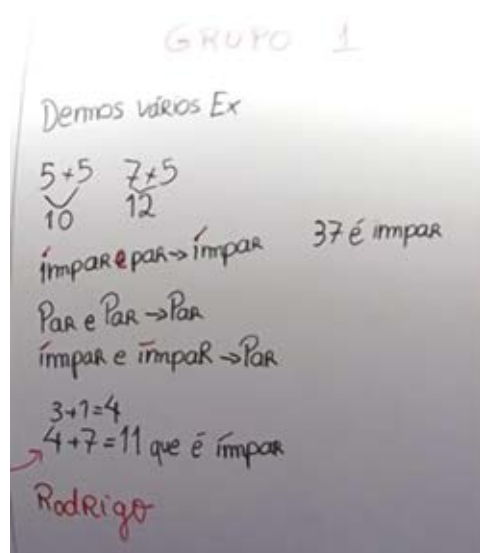 GRUPO 1
Demos vários Ex
5+5 7+5
10 12
ímpar e par → ímpar
37 é impar
Par e Par → Par
ímpar e ímpar → Par
3+1=4
4+7=11 que é ímpar
Rodrigo